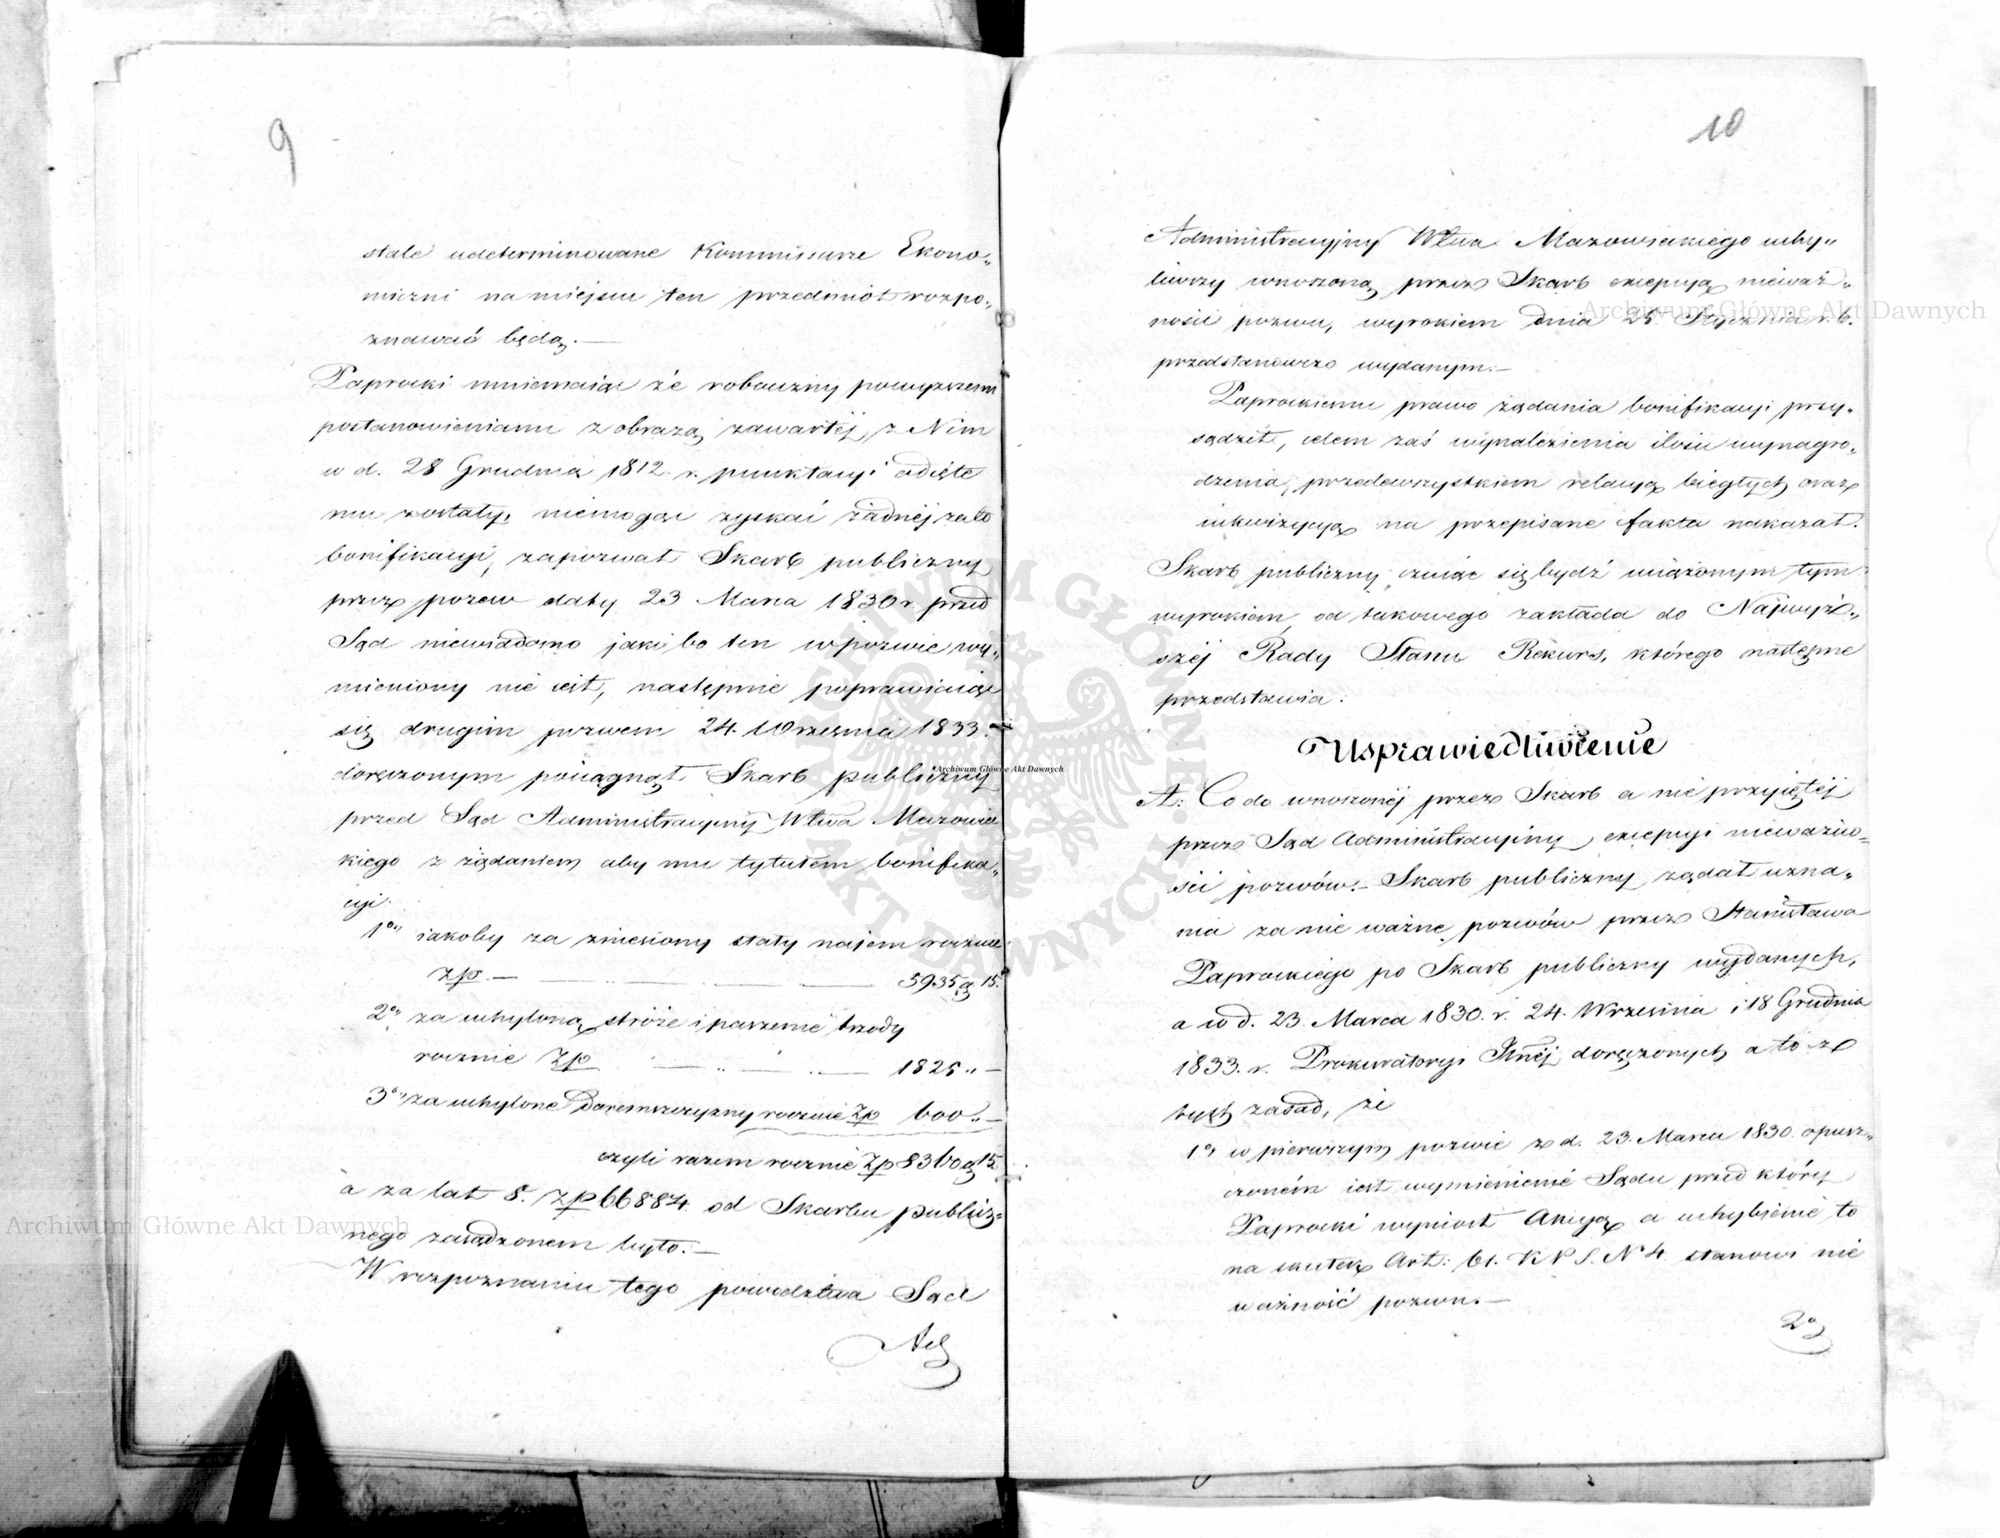 9
stale udeterminowane Kommissarze Ekono„
miczni na miejscu ten przedmiot rozpo„
znawać będą.—
Paprocki mniemaiąc że robocizny powyższemi
postanowieniami z obrazą zawartéj z Nim
w d. 28 Grudnia 1812 r. punktacyi odięte
mu zostały, niemogąc zyskać żadnéj za to
bonifikacyi, zapozwał Skarb publiczny
przez pozew daty 23 Marca 1830 r. przed
Sąd niewiadomo jaki bo ten w pozwie wy„
mieniony nie iest, następnie poprawiaiąc
się drugim pozwem 24. Września 1833.
doręczonym pociągnął Skarb publiczny
przed Sąd Administracyiny Wtwa Mazowiec
kiego z żądaniem aby mu tytułem bonifika„
cyi.
1o„ iakoby za zniesiony stały najem rocznie
zp. — 5935 g 15.
2o„ za uchyloną stróże i paszenie trzody
rocznie zp — 1825 „ —
3o„ za uchylone Daremszczyzny rocznie zp 600 „ —
czyli razem rocznie zp 8360 g 15
a za lat 8. zp 66884 od Skarbu publicz=
nego zasądzonem było.—
W rozpoznaniu tego powodztwa Sąd
Ad
10
Administracyjny Wtwa Mazowieckiego uchy„
liwszy wnoszoną przez Skarb excepcyą nieważ„
ności pozwu, wyrokiem dnia 25 Stycznia r. b.
przedstanowczo wydanym.—
Paprockiemu prawo żądania bonifikacyi przy„
sądził, celem zaś wynalezienia ilości wynagro„
dzenia, przedewszystkiem relacyą biegłych oraz
inkwizycyą na przepisane fakta nakazał.
Skarb publiczny czuiąc się bydź uciążonym tym
wyrokiem, od takowego zakłada do Najwyż„
széj Rady Stanu Rekurs, którego następne
przedstawia:
Usprawiedliwienie
A: Co do wnoszonéj przez Skarb a nie przyiętéj
przez Sąd Administracyiny excepcyi nieważno=
ści pozwów.— Skarb publiczny żądał uzna„
nia za nie ważne pozwów przez Stanisława
Paprockiego po Skarb publiczny wydanych,
a w d. 23. Marca 1830. r. 24. Września i 18 Grudnia
1833. r. Prokuratoryi Jlnéj doręczonych a to z
tych zasad, że
1o, w pierwszym pozwie z d. 23. Marca 1830. opusz„
czoném iest wymienienie Sądu przed który
Paprocki wyniosł Akcyą a uchybienie to
na skutek Art: 61. K P S. No 4 stanowi nie
ważność pozwu.—
2o,
ARCHIWUM GŁÓWNE AKT DAWNYCH
Archiwum Główne Akt Dawnych
Archiwum Główne Akt Dawnych
Archiwum Główne Akt Dawnych